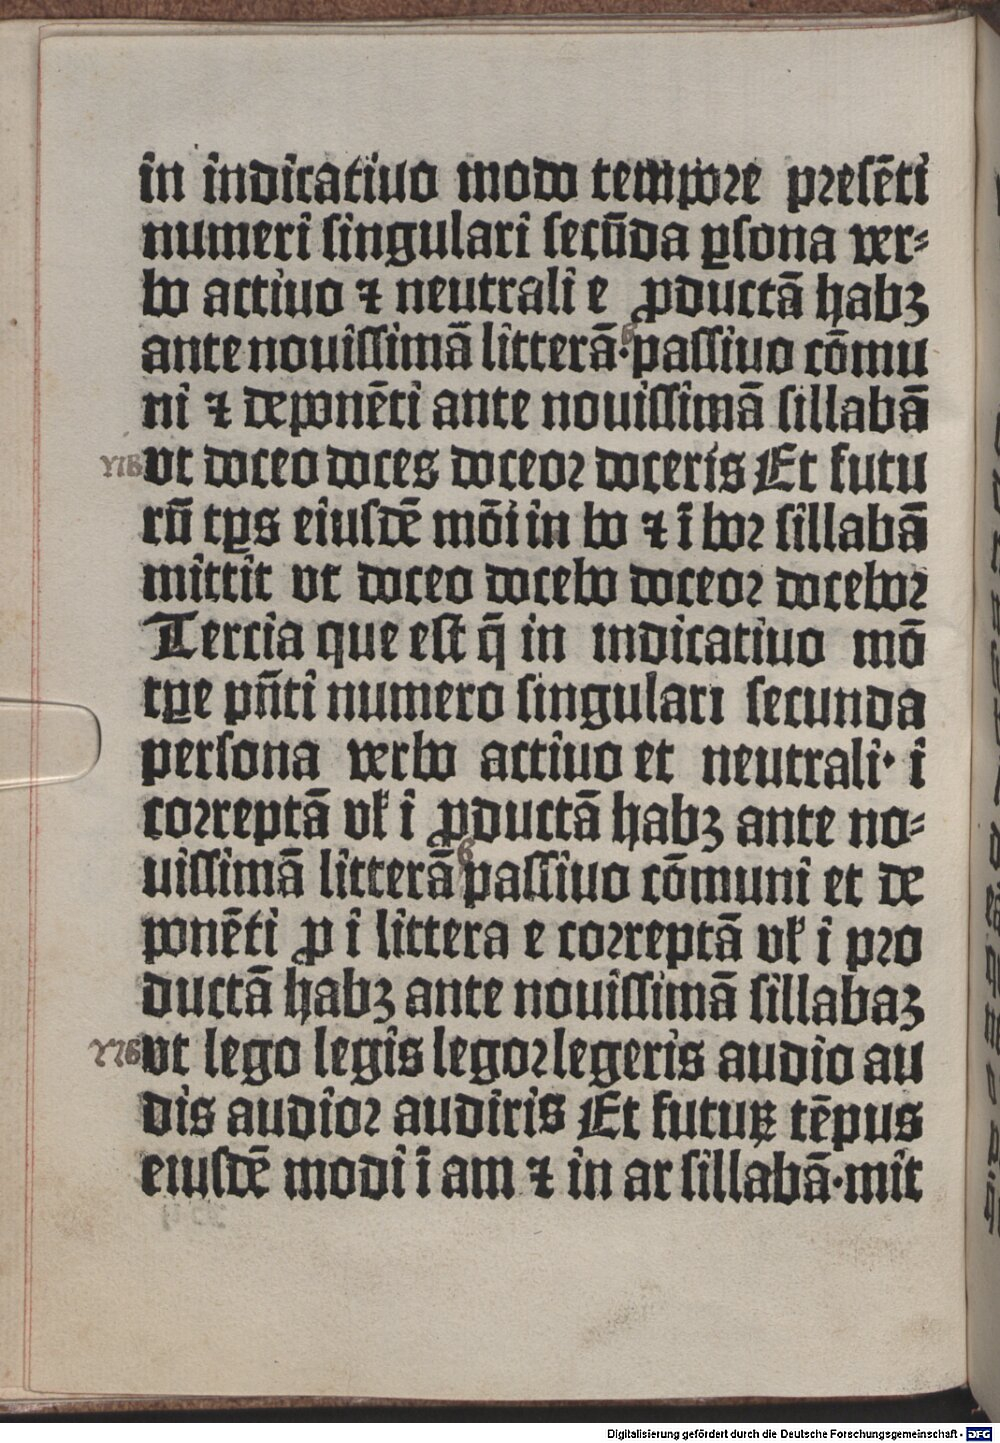 in indicatiuo modo tempore presēti
numeri singulari secūda ꝑsona ver⸗
bo actiuo ⁊ neutrali e ꝓductā habꝫ
ante nouissimā litterā· passiuo cōmu
ni ⁊ deponēti ante nouissimā sillabā
vt doceo doces doceor doceris Et futu
rū tꝑs eiusdē mōi in bo ⁊ ī bor sillabā
mittit vt doceo docebo doceor docebor
Tercia que est q̄ in indicatiuo mō
tꝑe pn̄ti numero singulari secunda
persona verbo actiuo et neutrali· i
correptā vł i ꝓductā habꝫ ante no⸗
uissimā litterā passiuo cōmuni et de
ponēti ꝓ i littera e correptā vł i pro
ductā habꝫ ante nouissimā sillabaꝫ
vt lego legis legor legeris audio au
dis audior audiris Et futuꝝ tēpus
eiusdē modi ī am ⁊ in ar sillabā·mit
Digitalisierung gefördert durch die Deutsche Forschungsgemeinschaft · DFG